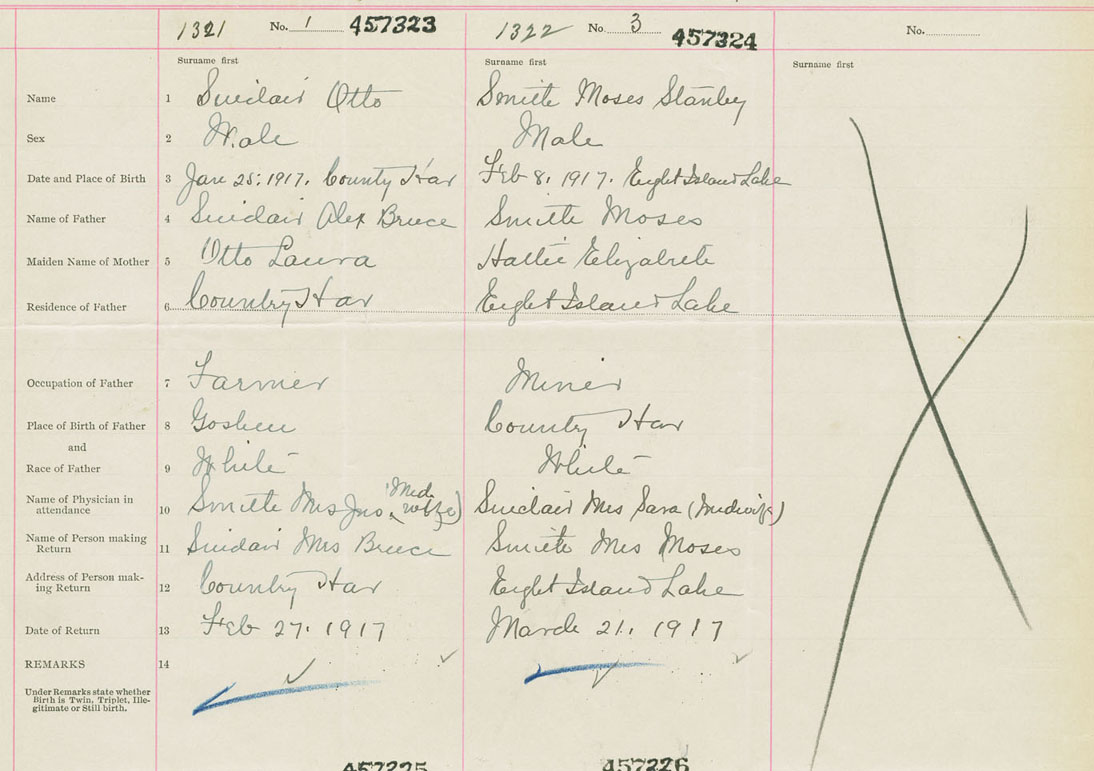 1321 No. 1 457323 1322 No. 3 457324 No.
Surname first Surname first Surname first
Name 1 Sinclair Otto Smith Moses Stanley
Sex 2 Male Male
Date and Place of Birth 3 Jan 25. 1917. County Har Feb 8. 1917. Eight Island Lake
Name of Father 4 Sinclair Alex Bruce Smith Moses
Maiden Name of Mother 5 Otto Laura Hattie Elizabeth
Residence of Father 6 Country Har Eight Island Lake
Occupation of Father 7 Farmer Miner
Place of Birth of Father 8 Goshen Country Har
and
Race of Father 9 White White
Name of Physician in
attendance 10 Smith Mrs Jno. (Mid wife) Sinclair Mrs Sara (Midwife)
Name of Person making
Return 11 Sinclair Mrs Bruce Smith Mrs Moses
Address of Person mak-
ing Return 12 Country Har Eight Island Lake
Date of Return 13 Feb 27. 1917 March 21. 1917
REMARKS 14
Under Remarks state whether
Birth is Twin, Triplet, Ille-
gitimate or Still birth.